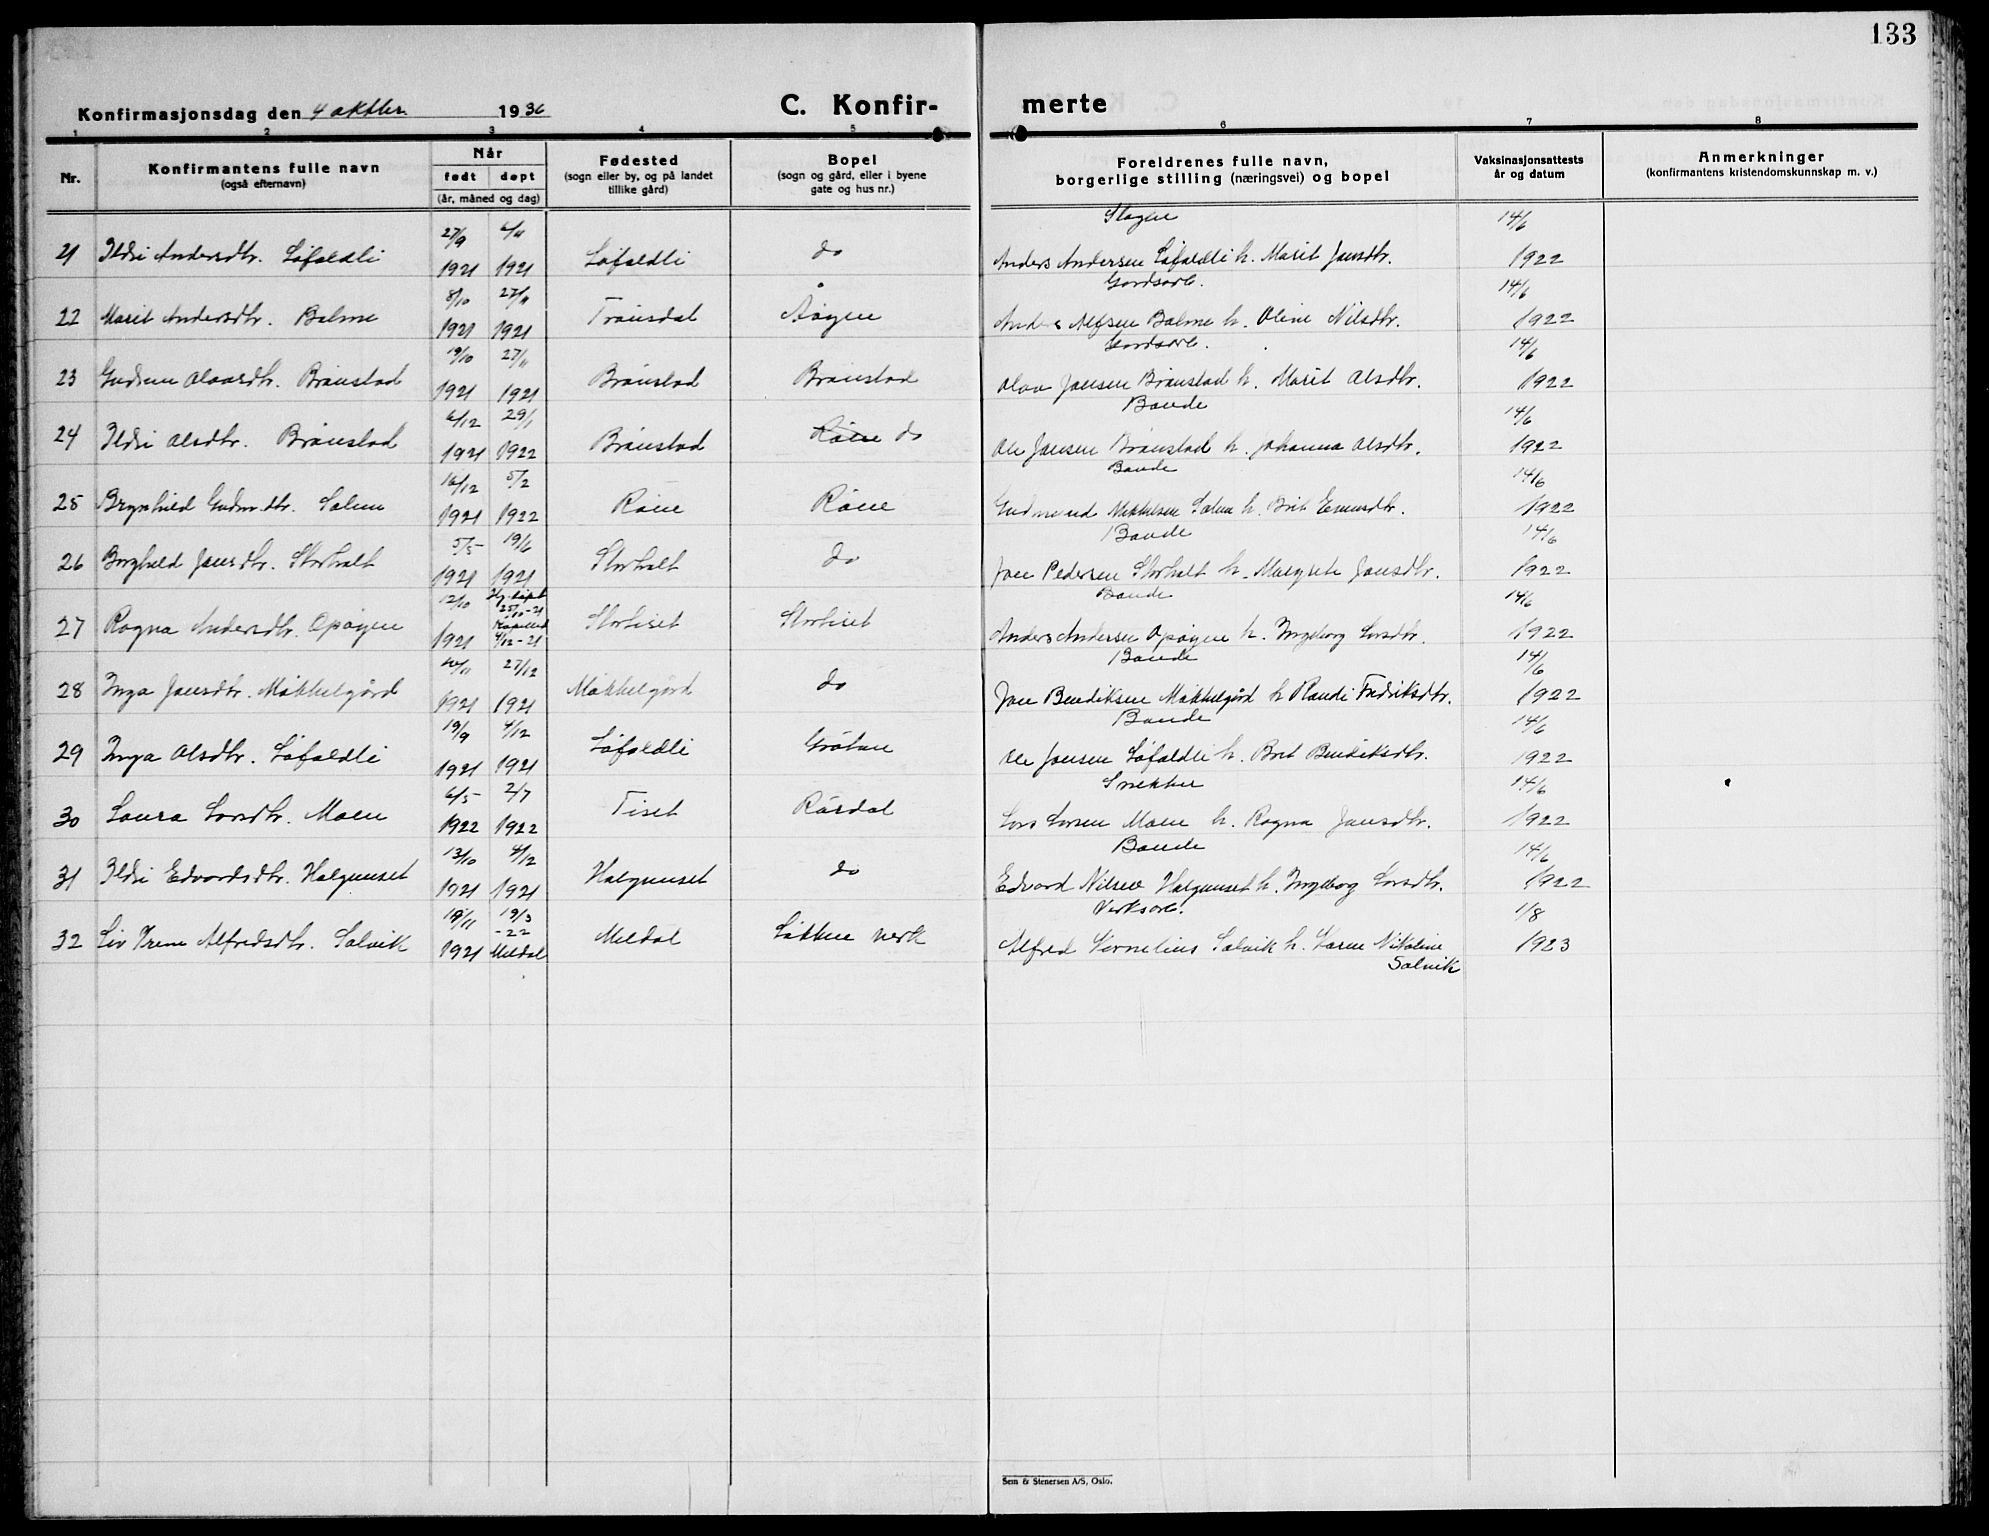 133
Konfirmasjonsdag den 4 oktbr. 1936
C. Konfir-
merte
1 2 3 4 5 6 7 8
Nr. Konfirmantens fulle navn (også efternavn) Når født døpt (år, måned og dag) Fødested (sogn eller by, og på landet tillike gård) Bopel (sogn og gård, eller i byene gate og hus nr.) Foreldrenes fulle navn, borgerlige stilling (næringsvei) og bopel Vaksinasjonsattests år og datum Anmerkninger (konfirmantens kristendomskunnskap m. v.)
27/9 6/11 14/6
21 Ildri Andersdtr. Løfaldli 1921 1921 Løfaldli do Anders Andersen Løfaldli h. Marit Jonsdtr. 1922
8/10 27/11 Gardsarb. 14/6
22 Marit Andersdtr. Balme 1921 1921 Trønsdal Åøyen Anders Alfsen Balme h. Oline Nilsdtr. 1922
19/10 27/11 Gardsarb. 14/6
23 Gudrun Olavsdtr. Brønstad 1921 1921 Brønstad Brønstad Olav Jonsen Brønstad h. Marit Olsdtr. 1922
6/12 29/1 Bonde 14/6
24 Ildri Olsdtr. Brønstad 1921 1922 Brønstad Røen do Ole Jonsen Brønstad h. Johanna Olsdtr. 1922
16/12 5/2 Bonde 14/6
25 Brynhild Gudm.dtr. Solem 1921 1922 Røen Røen Gudmund Mikkelsen Solem h. Brit 1922
5/5 19/6 Bonde 14/6
26 Borghild Jonsdtr. Storholt 1921 1921 Storholt do Jon Pedersen Storholt h. Margrete Jonsdtr. 1922
12/10 Hj. døpt 25/10-21 Bonde 14/6
27 Ragna Andersdtr. Opøyen 1921 4/12-21 Stortiset Stortiset Anders Andersen Opøyen h. Ingeborg Larsdtr. 1922
27/12 Bonde 14/6
28 Inga Jonsdtr. Mikkelgård 1921 1921 Mikkelgård do Jon Bendiksen Mikkelgård h Randi Fredriksdtr. 1922
19/9 4/12 Bonde 14/6
29 Inga Olsdtr. Løfaldli 1921 1921 Løfaldli Ole Jonsen Løfaldli h. Brit Bendiksdtr. 1922
6/5 2/7 Snekker 14/6
30 Laura Larsdtr. Moen 1922 1922 Tiset Rørdal Lars Larsen Moen h. Ragna Jonsdtr. 1922
13/10 4/12 Bonde 14/6
31 Ildri Edvardsdtr. Halgunset 1921 1921 Halgunset do Edvard Nilsen Halgunset h. Ingeborg Larsdtr. 1922
19/11 19/3 -22 Verksarb. 1/8
32 Liv Irene Alfredsdtr. Solvik 1921 Meldal Meldal Løkken verk Alfred Kornelius Solvik h. Karen Nikoline Solvik 1923
Sem & Stenersen A/S, Oslo.